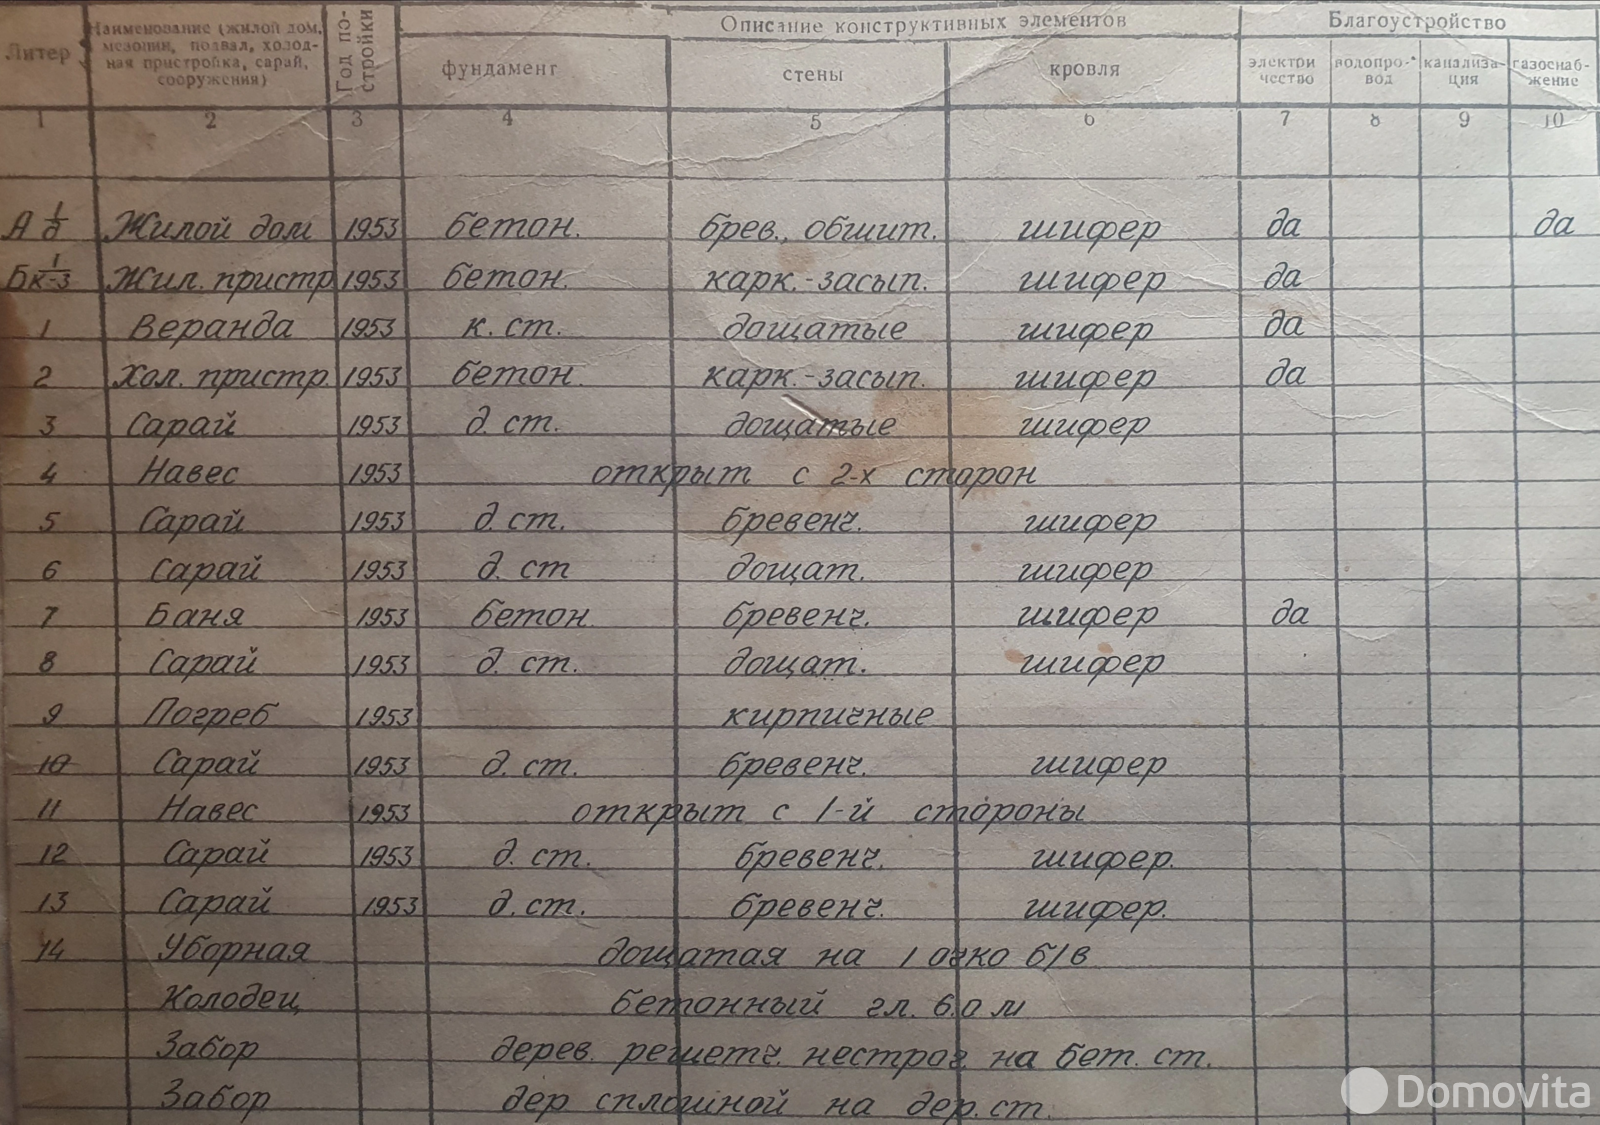 Литер Наименование (жилой дом, мезонин, подвал, холодная пристройка, сарай, сооружения) Год постройки Описание конструктивных элементов Благоустройство
фундамент стены кровля электричество водопровод канализация газоснабжение
1 2 3 4 5 6 7 8 9 10
А 1/д Жилой дом 1953 бетон. брев., обшит. шифер да да
Бк 1/к-3 Жил. пристр 1953 бетон. карк.-засып. шифер да
1 Веранда 1953 к. ст. дощатые шифер да
2 Хол. пристр. 1953 бетон. карк.-засып. шифер да
3 Сарай 1953 д. ст. дощатые шифер
4 Навес 1953 открыт с 2-х сторон
5 Сарай 1953 д. ст. бревенч. шифер
6 Сарай 1953 д. ст дощат. шифер
7 Баня 1953 бетон бревенч. шифер да
8 Сарай 1953 д. ст. дощат. шифер
9 Погреб 1953 кирпичные
10 Сарай 1953 д. ст. бревенч. шифер
11 Навес 1953 открыт с 1-й стороны
12 Сарай 1953 д. ст. бревенч. шифер.
13 Сарай 1953 д. ст. бревенч. шифер.
14 Уборная дощатая на 1 очко б/в
Колодец бетонный гл. 6.0 м
Забор дерев. решетч. нестрог. на бет. ст.
Забор дер сплошной на дер. ст.
Domovita